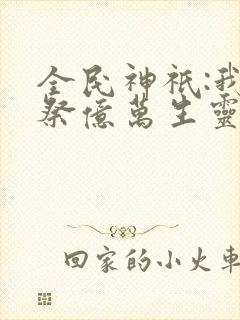 全民神祇:我
祭億萬生靈
回家的小火車